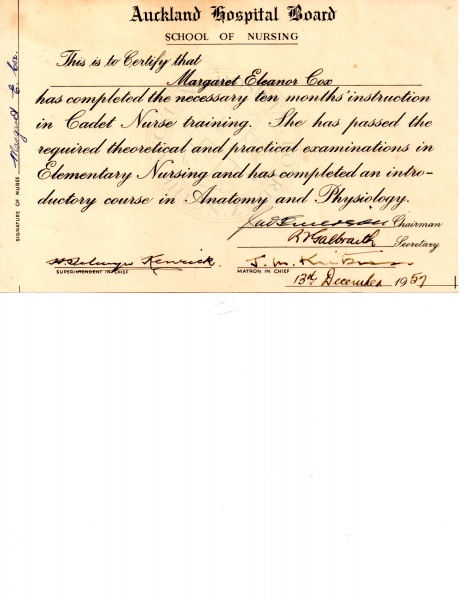 Auckland Hospital Board
SCHOOL OF NURSING
This is to Certify that
Margaret Eleanor Cox
has completed the necessary ten months' instruction
in Cadet Nurse training. She has passed the
required theoretical and practical examinations in
Elementary Nursing and has completed an intro-
ductory course in Anatomy and Physiology.
Chairman
R Galbraith Secretary
Kenrick J. M.
SUPERINTENDENT IN CHIEF MATRON IN CHIEF
13th December 1957
SIGNATURE OF NURSE Margaret E. Cox.